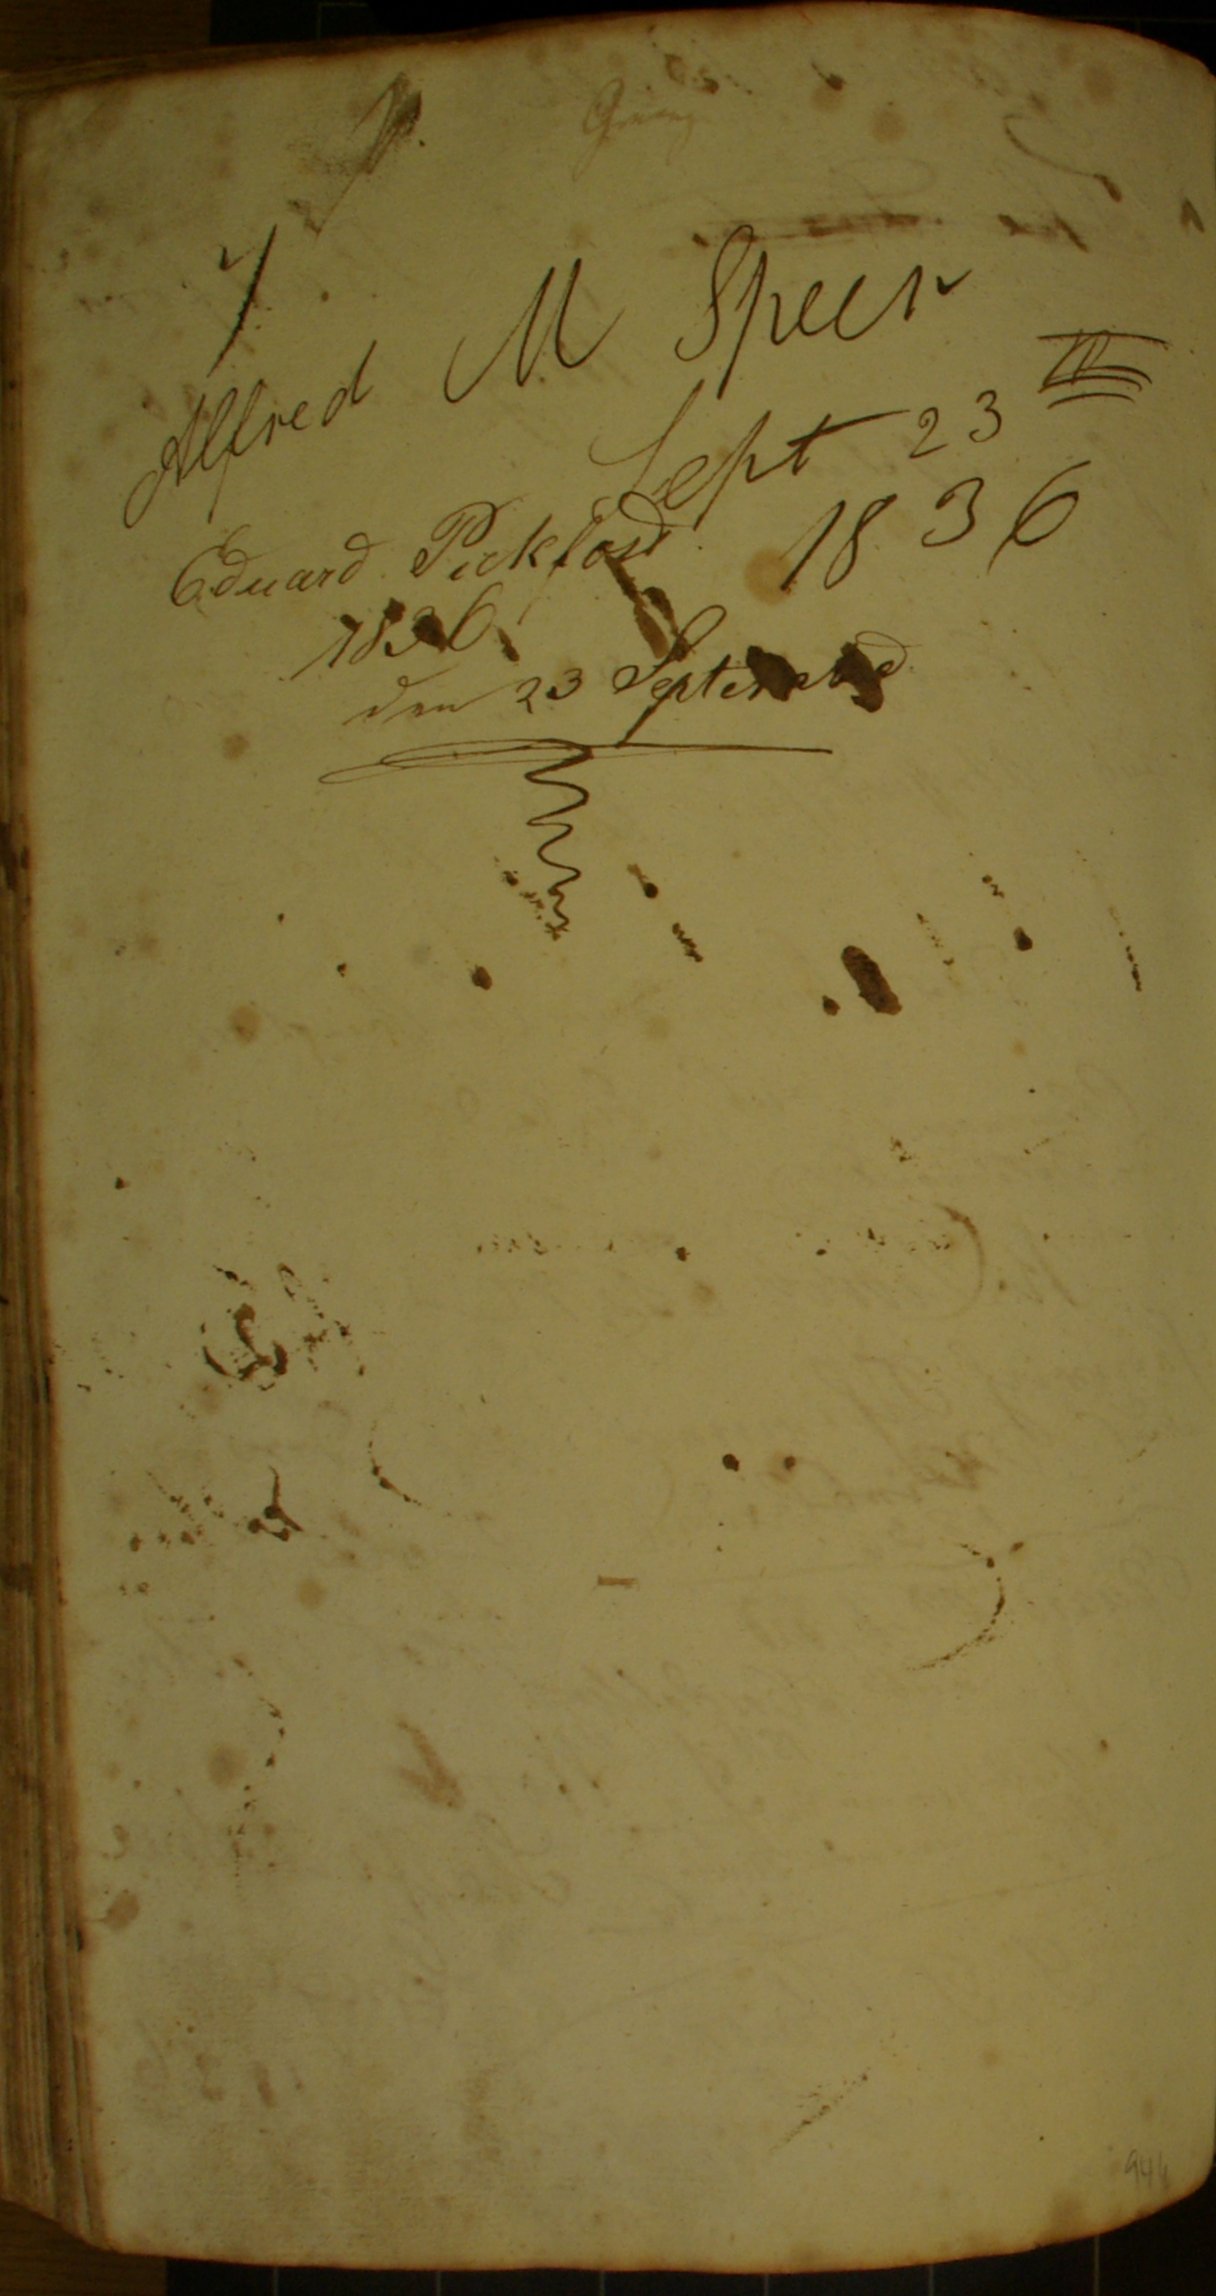 Alfred M Speer
Sept 23
1836
Eduard Pickford
1836
den 23 September